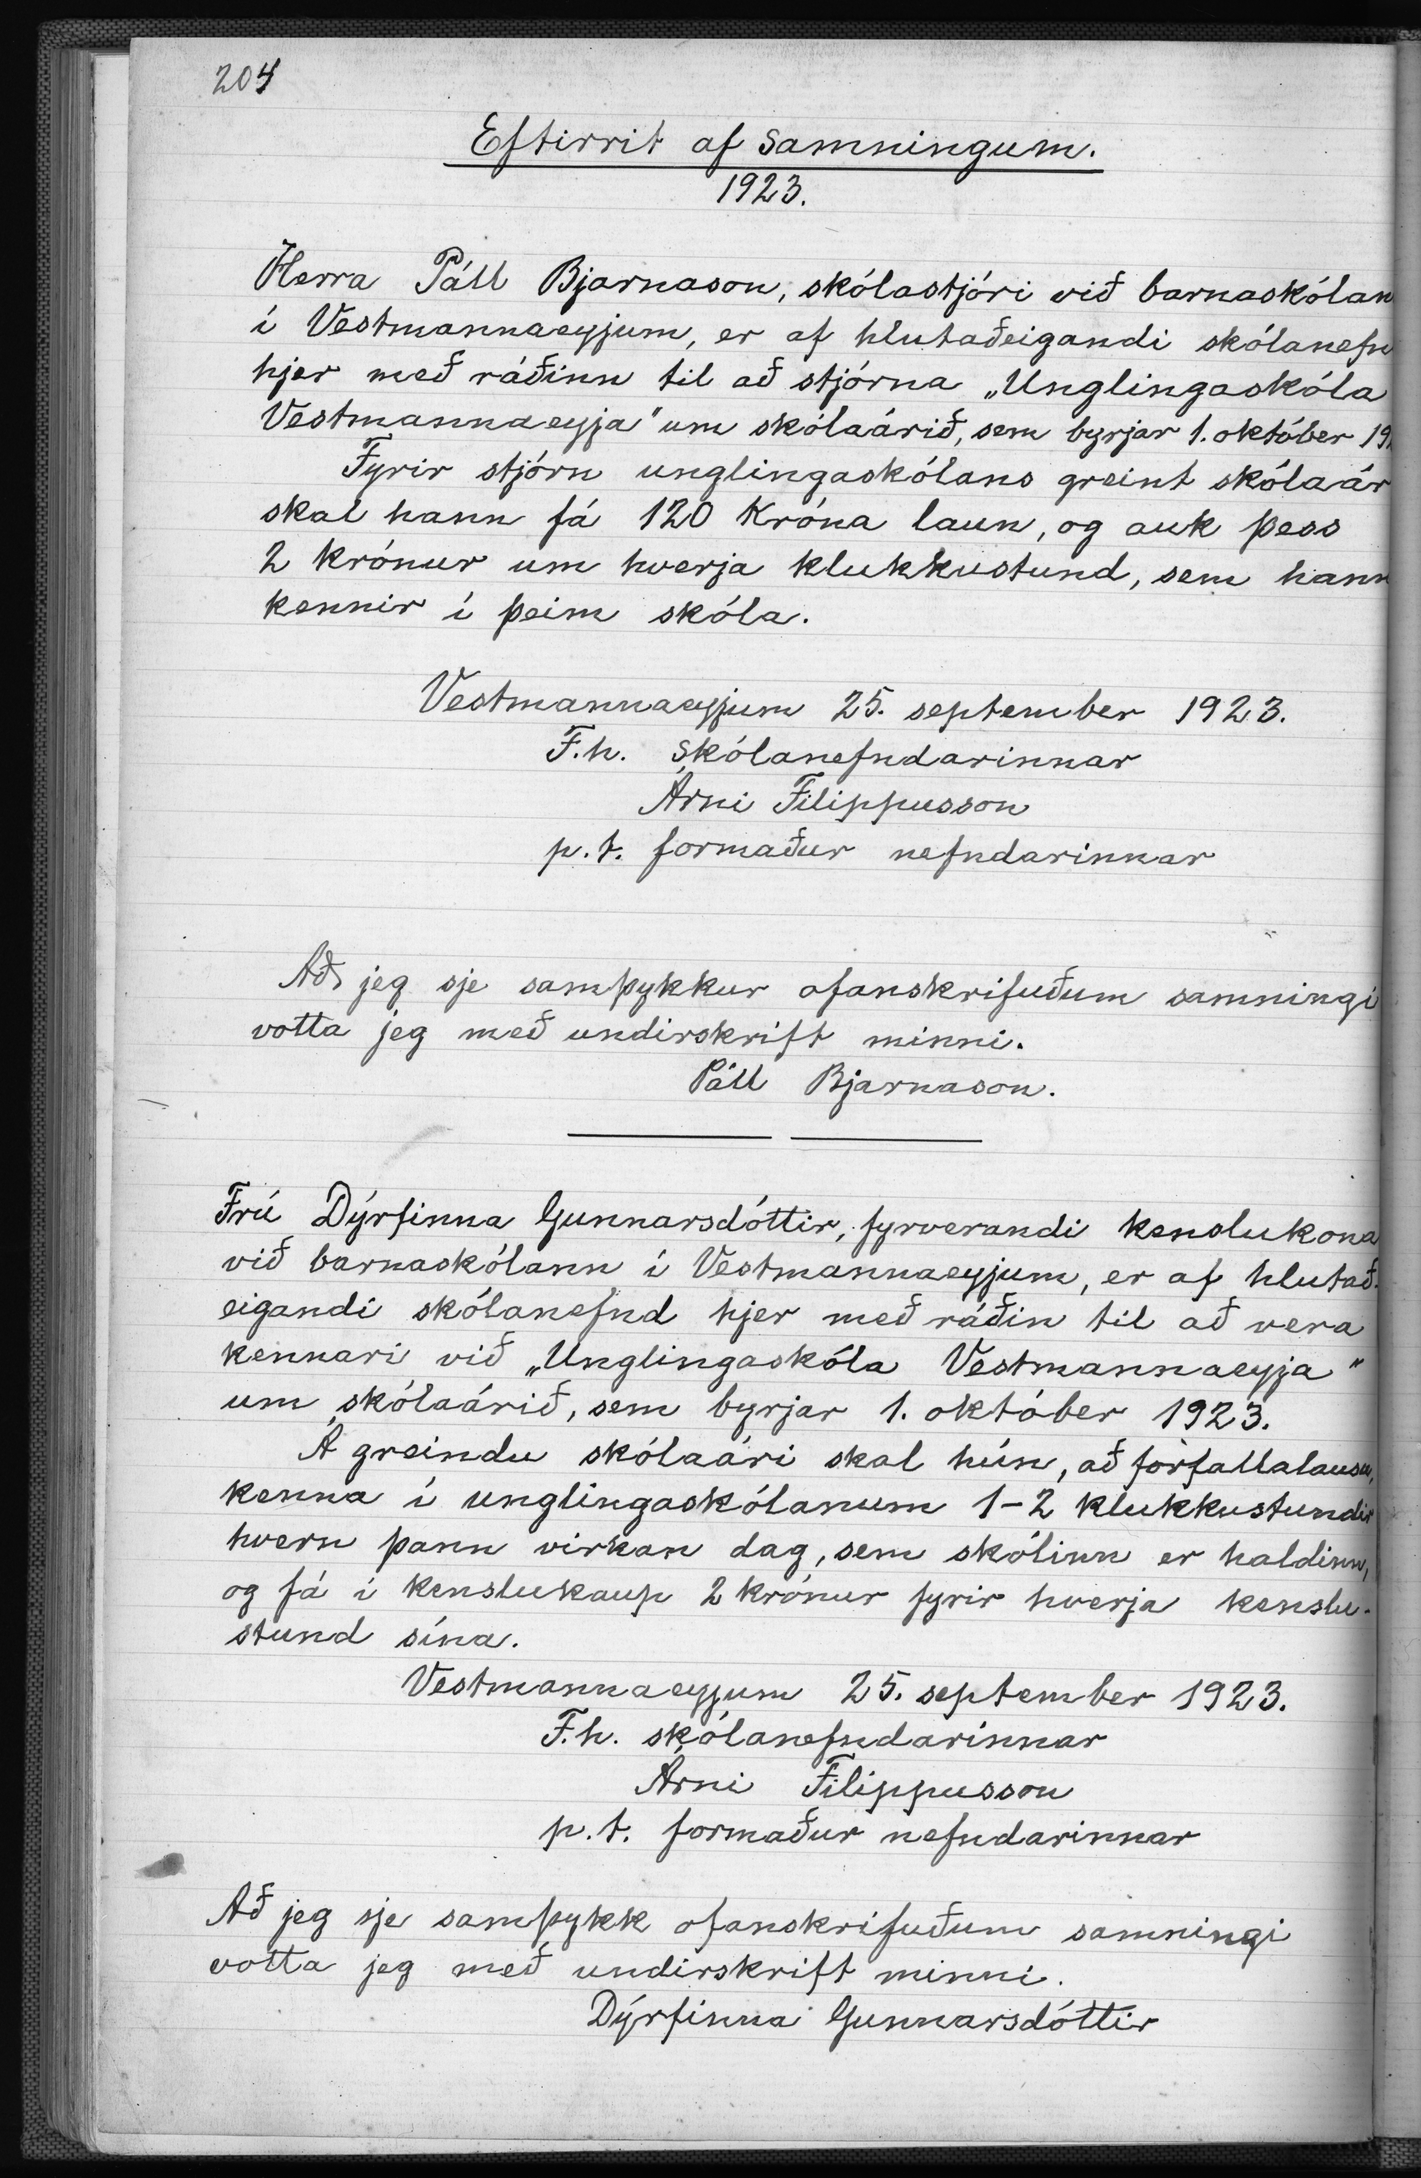 204
Eftirrit af samningum.
1923.
Herra Páll Bjarnason, skólastjóri við barnaskólan
í Vestmannaeyjum, er af hlutaðeigandi skólanefn
hjer með ráðinn til að stjórna „Unglingaskóla
Vestmannaeyja" um skólaárið, sem byrjar 1. október 19
Fyrir stjórn unglingaskólans greint skólaár
skal hann fá 120 króna laun, og auk þess
2 krónur um hverja klukkustund, sem hann
kennir í þeim skóla.
Vestmannaeyjum 25. september 1923.
F.h. skólanefndarinnar
Árni Filippusson
p.t. formaður nefndarinnar
Að jeg sje samþykkur ofanskrifuðum samningi
votta jeg með undirskrift minni.
Páll Bjarnason.
Frú Dýrfinna Gunnarsdóttir, fyrverandi kenslukona
við barnaskólann í Vestmannaeyjum, er af hlutað-
eigandi skólanefnd hjer með ráðin til að vera
kennari við „Unglingaskóla Vestmannaeyja"
um skólaárið, sem byrjar 1. október 1923.
Á greindu skólaári skal hún, að forfallalausu,
kenna í unglingaskólanum 1-2 klukkustundir
hvern þann virkan dag, sem skólinn er haldinn,
og fá í kenslukaup 2 krónur fyrir hverja kenslu-
stund sína.
Vestmannaeyjum 25. september 1923.
F.h. skólanefndarinnar
Árni Filippusson
p.t. formaður nefndarinnar
Að jeg sje samþykk ofanskrifuðum samningi
votta jeg með undirskrift minni.
Dýrfinna Gunnarsdóttir